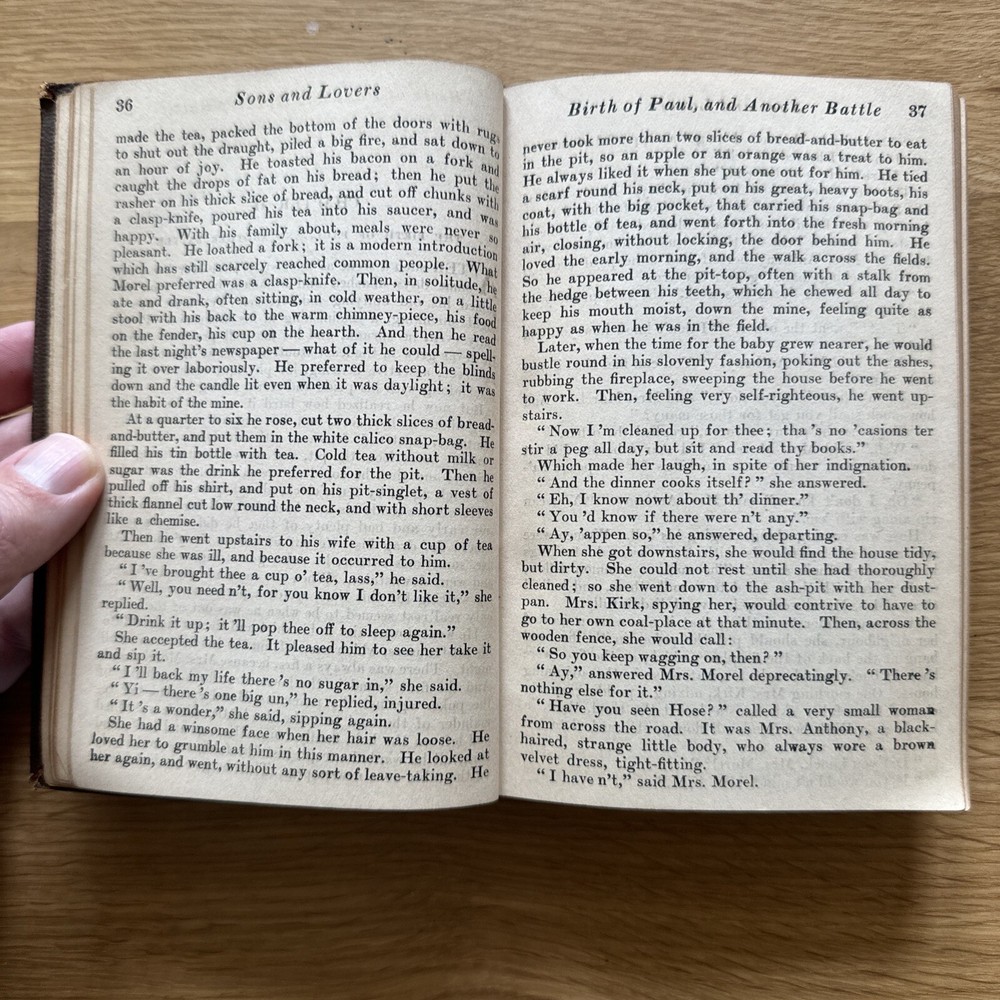 36
Sons and Lovers
made the tea, packed the bottom of the doors with rugs
to shut out the draught, piled a big fire, and sat down to
an hour of joy. He toasted his bacon on a fork and
caught the drops of fat on his bread; then he put the
rasher on his thick slice of bread, and cut off chunks with
a clasp-knife, poured his tea into his saucer, and was
happy. With his family about, meals were never so
pleasant. He loathed a fork; it is a modern introduction
which has still scarcely reached common people. What
Morel preferred was a clasp-knife. Then, in solitude, he
ate and drank, often sitting, in cold weather, on a little
stool with his back to the warm chimney-piece, his food
on the fender, his cup on the hearth. And then he read
the last night's newspaper — what of it he could — spell-
ing it over laboriously. He preferred to keep the blinds
down and the candle lit even when it was daylight; it was
the habit of the mine.
At a quarter to six he rose, cut two thick slices of bread-
and-butter, and put them in the white calico snap-bag. He
filled his tin bottle with tea. Cold tea without milk or
sugar was the drink he preferred for the pit. Then he
pulled off his shirt, and put on his pit-singlet, a vest of
thick flannel cut low round the neck, and with short sleeves
like a chemise.
Then he went upstairs to his wife with a cup of tea
because she was ill, and because it occurred to him.
"I 've brought thee a cup o' tea, lass," he said.
"Well, you need n't, for you know I don't like it," she
replied.
"Drink it up; it 'll pop thee off to sleep again."
She accepted the tea. It pleased him to see her take it
and sip it.
"I 'll back my life there 's no sugar in," she said.
"Yi — there 's one big un," he replied, injured.
"It 's a wonder," she said, sipping again.
She had a winsome face when her hair was loose. He
loved her to grumble at him in this manner. He looked at
her again, and went, without any sort of leave-taking. He
Birth of Paul, and Another Battle
37
never took more than two slices of bread-and-butter to eat
in the pit, so an apple or an orange was a treat to him.
He always liked it when she put one out for him. He tied
a scarf round his neck, put on his great, heavy boots, his
coat, with the big pocket, that carried his snap-bag and
his bottle of tea, and went forth into the fresh morning
air, closing, without locking, the door behind him. He
loved the early morning, and the walk across the fields.
So he appeared at the pit-top, often with a stalk from
the hedge between his teeth, which he chewed all day to
keep his mouth moist, down the mine, feeling quite as
happy as when he was in the field.
Later, when the time for the baby grew nearer, he would
bustle round in his slovenly fashion, poking out the ashes,
rubbing the fireplace, sweeping the house before he went
to work. Then, feeling very self-righteous, he went up-
stairs.
"Now I 'm cleaned up for thee; tha 's no 'casions ter
stir a peg all day, but sit and read thy books."
Which made her laugh, in spite of her indignation.
"And the dinner cooks itself?" she answered.
"Eh, I know nowt about th' dinner."
"You 'd know if there were n't any."
"Ay, 'appen so," he answered, departing.
When she got downstairs, she would find the house tidy,
but dirty. She could not rest until she had thoroughly
cleaned; so she went down to the ash-pit with her dust-
pan. Mrs. Kirk, spying her, would contrive to have to
go to her own coal-place at that minute. Then, across the
wooden fence, she would call:
"So you keep wagging on, then?"
"Ay," answered Mrs. Morel deprecatingly. "There 's
nothing else for it."
"Have you seen Hose?" called a very small woman
from across the road. It was Mrs. Anthony, a black-
haired, strange little body, who always wore a brown
velvet dress, tight-fitting.
"I have n't," said Mrs. Morel.